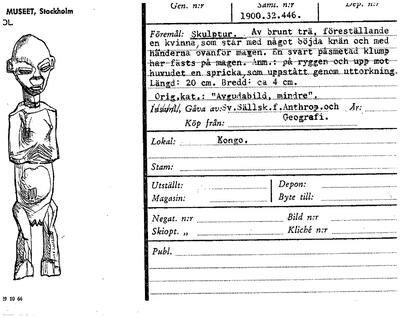 MUSEET, Stockholm
Gen. n:r
Saml. n:r
Dep. n:r
1900.32.446.
Föremål: Skulptur. Av brunt trä, föreställande
en kvinna, som står med något böjda knän och med
händerna ovanför magen. En svart påsmetad klump
har fästs på magen. Anm.: på ryggen och upp mot
huvudet en spricka, som uppstått genom uttorkning.
Längd: 20 cm. Bredd: ca 4 cm.
Orig.kat.: "Avgudabild, mindre".
Gåva av: Sv.Sällsk.f.Anthrop.och År:
Geografi.
Köp från:
Lokal: Kongo.
Stam:
Utställt:
Depon:
Magasin:
Byte till:
Negat. n:r
Bild n:r
Skiopt. „
Kliché n:r
Publ.
29 10 66